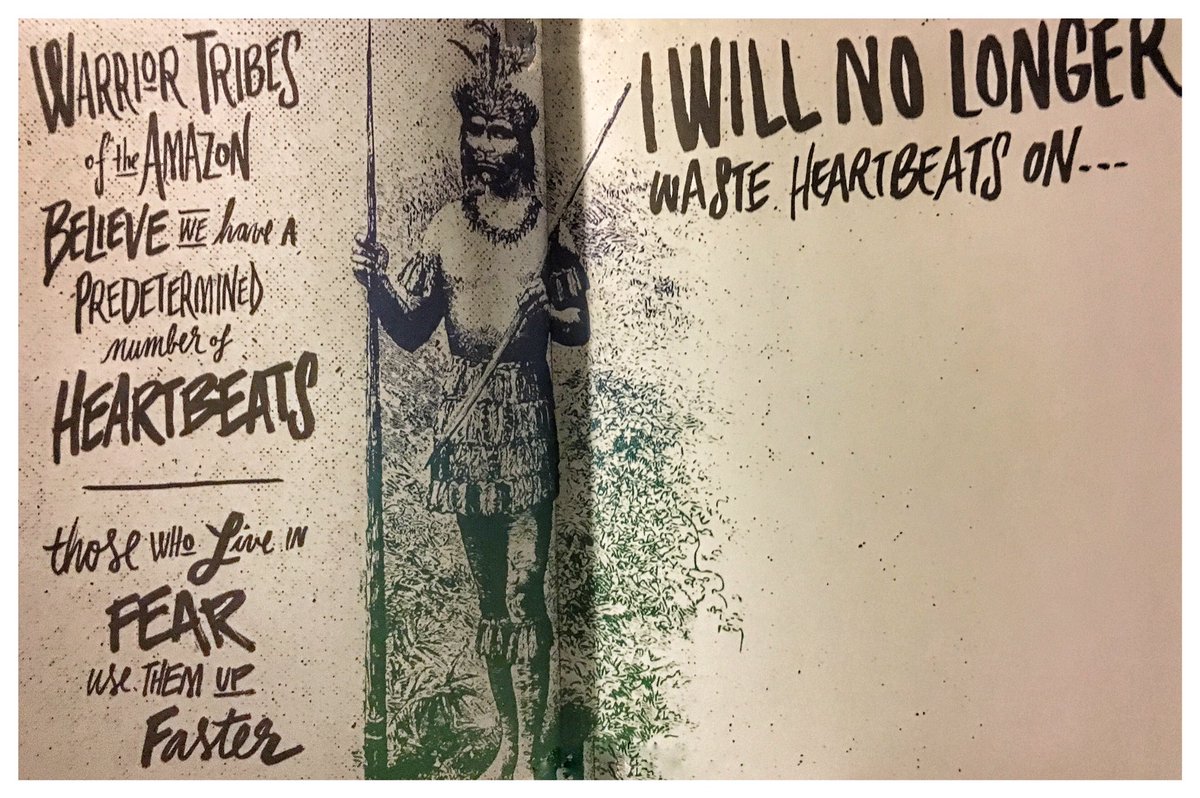 WARRIOR TRIBES
of the AMAZON
BELIEVE WE have A
PREDETERMINED
number of
HEARTBEATS
those WHO Live IN
FEAR
use THEM UP
Faster
I WILL NO LONGER
WASTE HEARTBEATS ON...